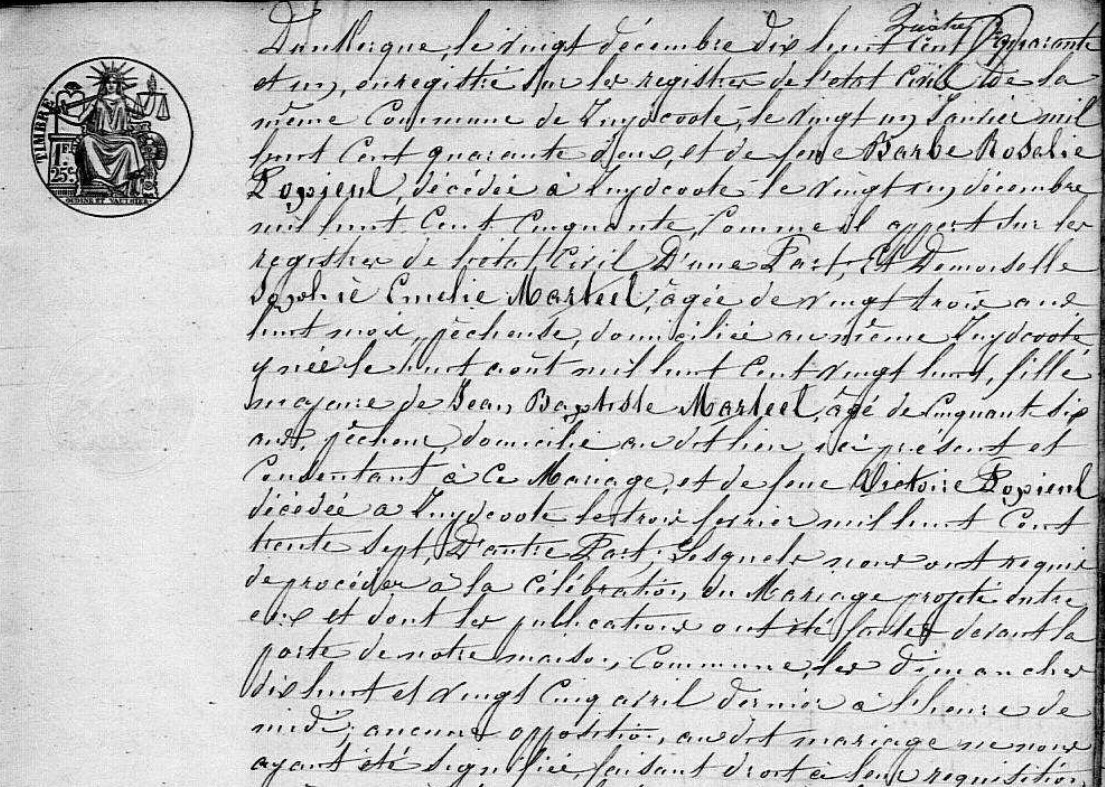 TIMBRE
1 FR
25 C
OUDINÉ ET VAUTHIER
quatre
Dunkerque, le vingt décembre dix huit cent quarante
et un, enregistré sur les registres de l'état Civil de la
même Commune de Zuydcoote, le vingt un Janvier mil
huit Cent quarante deux, et de feue Barbe Rosalie
Popieul, décédée à Zuydcoote le vingt un décembre
mil huit Cent Cinquante, Comme il appert sur les
registres de l'état Civil D'une Part, Et Demoiselle
Sophie Emelie Marteel, âgée de vingt trois ans
huit mois, pêcheuse, domiciliée au même Zuydcoote
y née le huit août mil huit Cent vingt huit, fille
majeure de Jean Baptiste Marteel, âgé de Cinquante six
ans, pêcheur, domicilié au dit lieu, ici présent et
Consentant à Ce Mariage, et de feue Victoire Popieul
décédée à Zuydcoote le trois fevrier mil huit Cent
trente sept, D'autre Part, Lesquels nous ont requis
de procéder à la Célébration du Mariage projeté entre
eux et dont les publications ont été faites devant la
porte de notre maison Commune, les dimanches
dix huit et vingt Cinq avril dernier à l'heure de
midi; aucune opposition au dit mariage ne nous
ayant été signifiée, faisant droit à leur requisition,